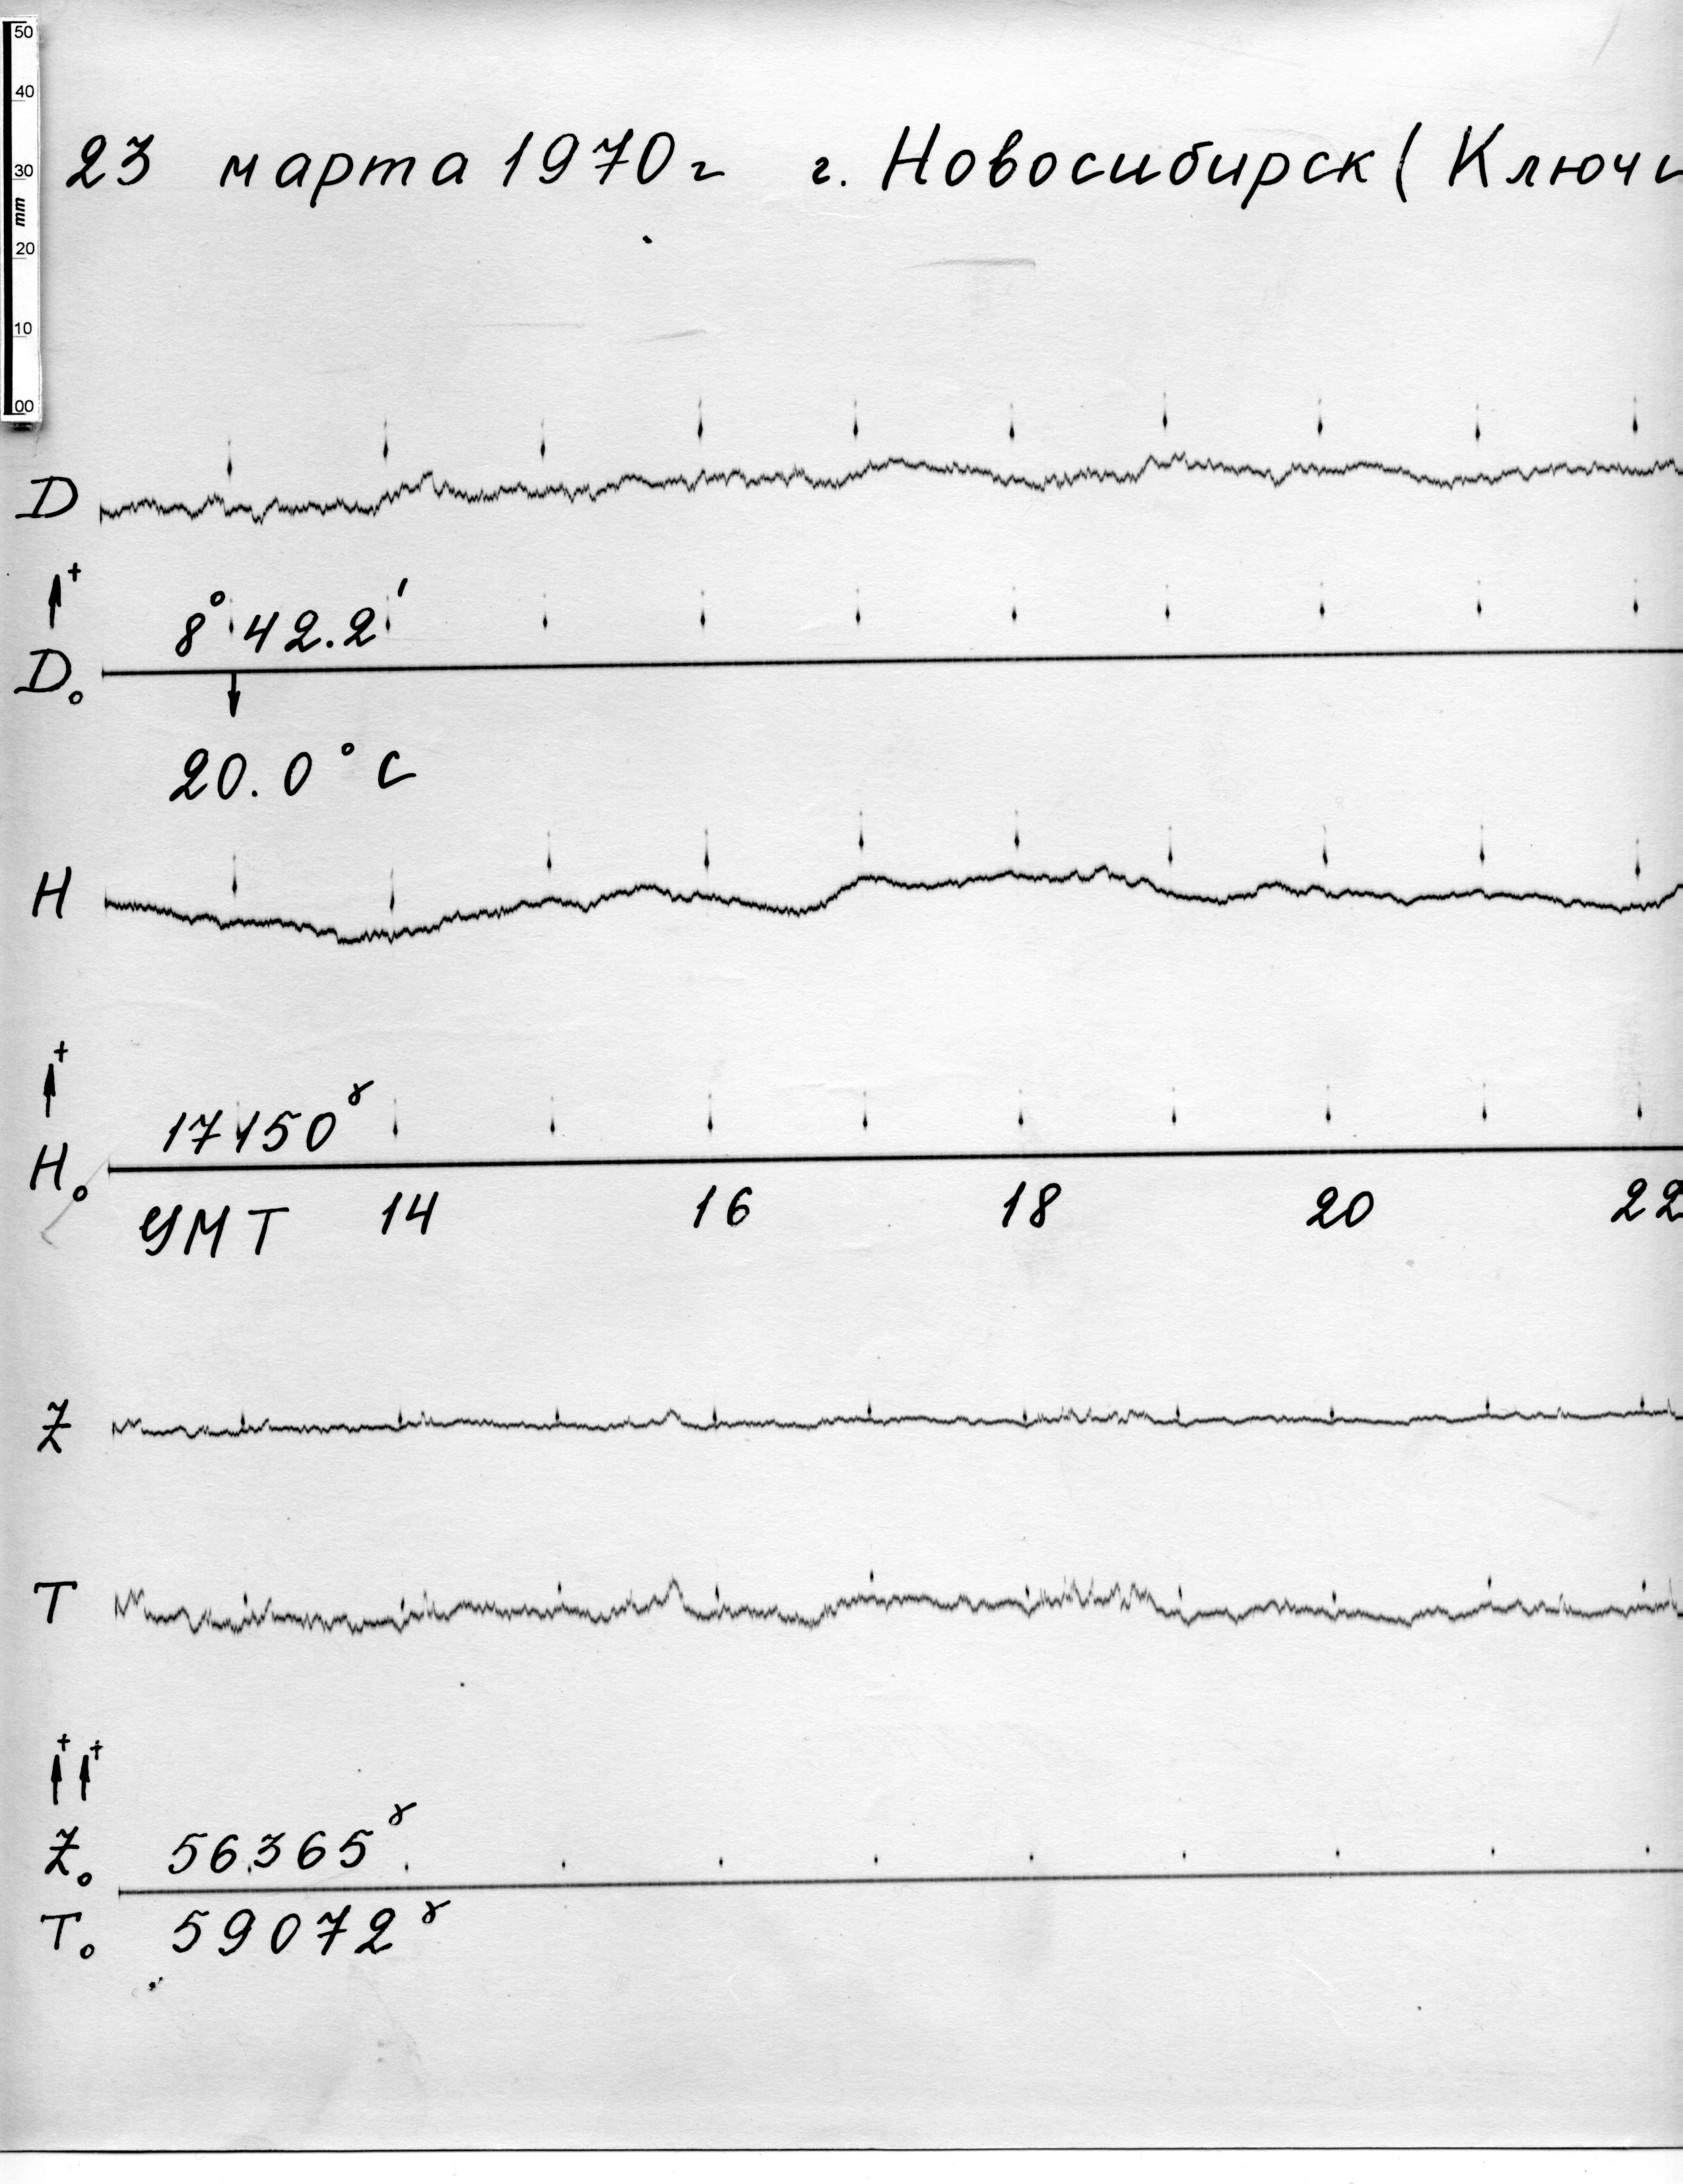 50
40
30
mm
20
10
00
23 марта 1970г г. Новосибирск (Ключи
D
+
8° 42.2′
D₀
20.0°C
H
+
17150ᵞ
H₀
УМТ 14 16 18 20 22
Z
T
+ +
Z₀ 56365ᵞ
T₀ 59072ᵞ